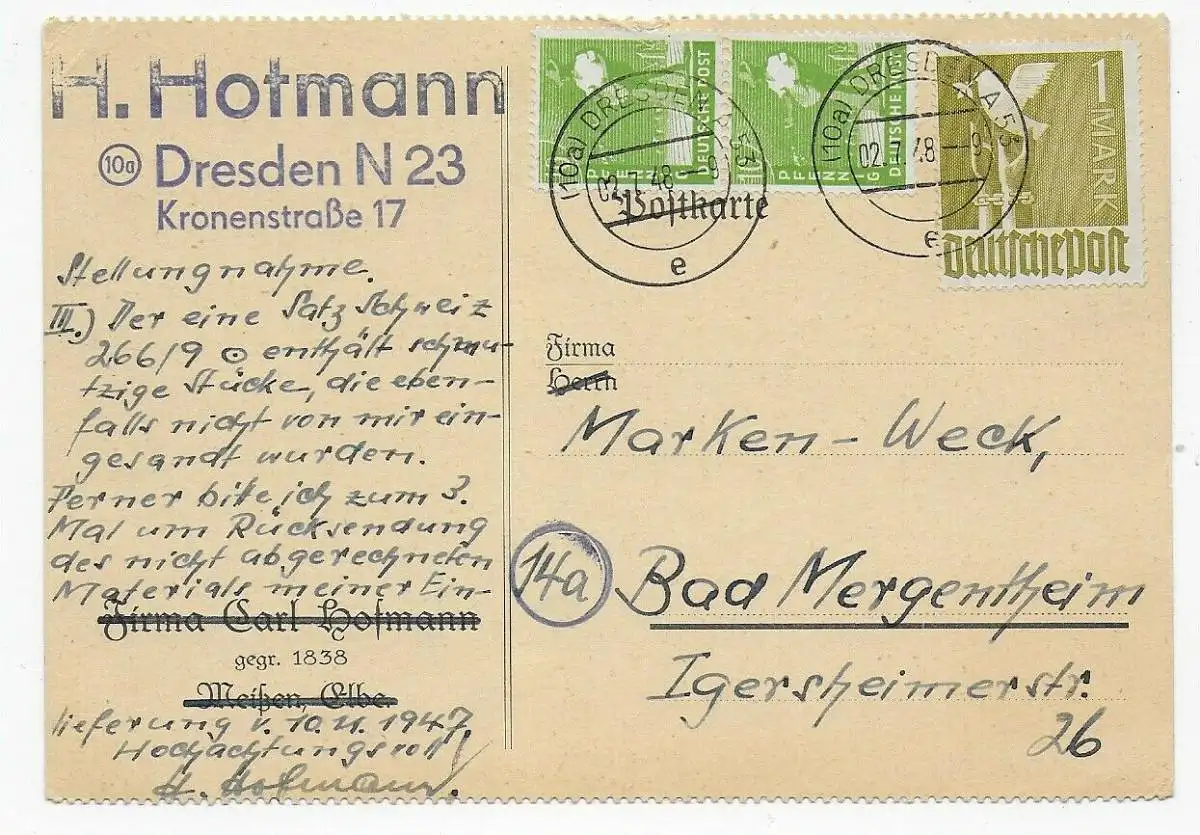 H. Hofmann
10a Dresden N 23
Kronenstraße 17
Stellungnahme.
III.) Der eine Satz Schweiz
266/9 ⊙ enthält schmu-
tzige Stücke, die eben-
falls nicht von mir ein-
gesandt wurden.
Ferner bitte ich zum 3.
Mal um Rücksendung
des nicht abgerechneten
Materials meiner Ein-
Firma Carl Hofmann
gegr. 1838
Meißen, Elbe.
lieferung v. 10.11.1947.
Hochachtungsvoll!
H. Hofmann.
PFENNIG
DEUTSCHE POST
PFENNIG
DEUTSCHE POST
1 MARK
Deutsche Post
(10a) DRESDEN A 53
02.7.48 — 9
e
(10a) DRESDEN A 53
02.7.48 — 9
e
Postkarte
Firma
Herrn
Marken-Weck,
14a Bad Mergentheim
Igersheimerstr.
26